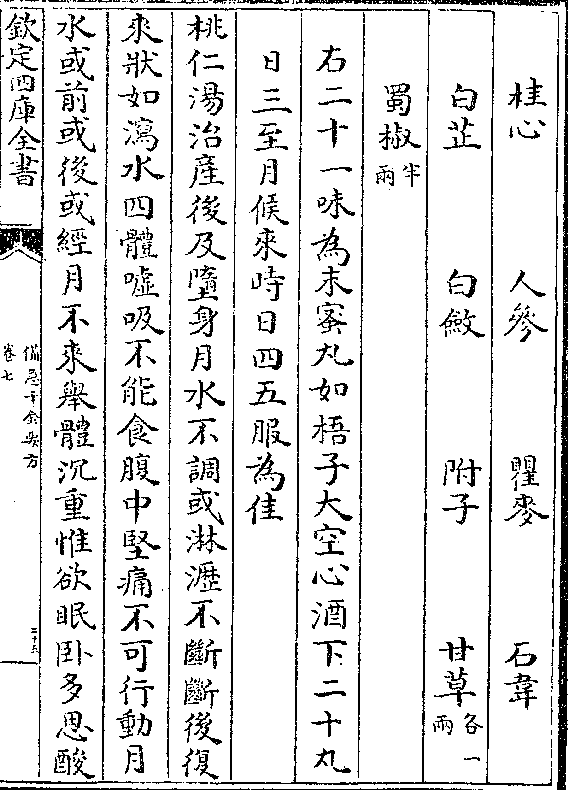 桂心 人參 瞿麥 石韋
白芷 白斂 附子 甘草各一兩
蜀椒半兩
右二十一味為末蜜丸如梧子大空心酒下二十丸
日三至月候來時日四五服為佳
桃仁湯治産後及墮身月水不調或淋瀝不斷斷後復
來狀如瀉水四體噓吸不能食腹中堅痛不可行動月
水或前或後或經月不來舉體沉重惟欲眠卧多思酸
欽定四庫全書
備急千金要方
卷七
二十五